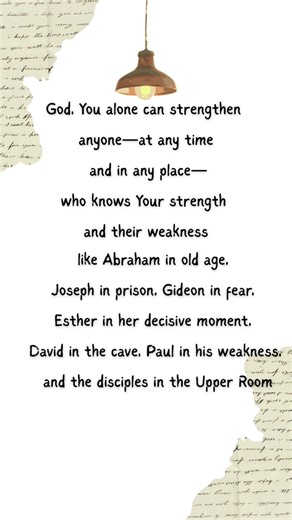 God, You alone can strengthen
anyone—at any time
and in any place—
who knows Your strength
and their weakness
like Abraham in old age,
Joseph in prison, Gideon in fear,
Esther in her decisive moment,
David in the cave, Paul in his weakness,
and the disciples in the Upper Room